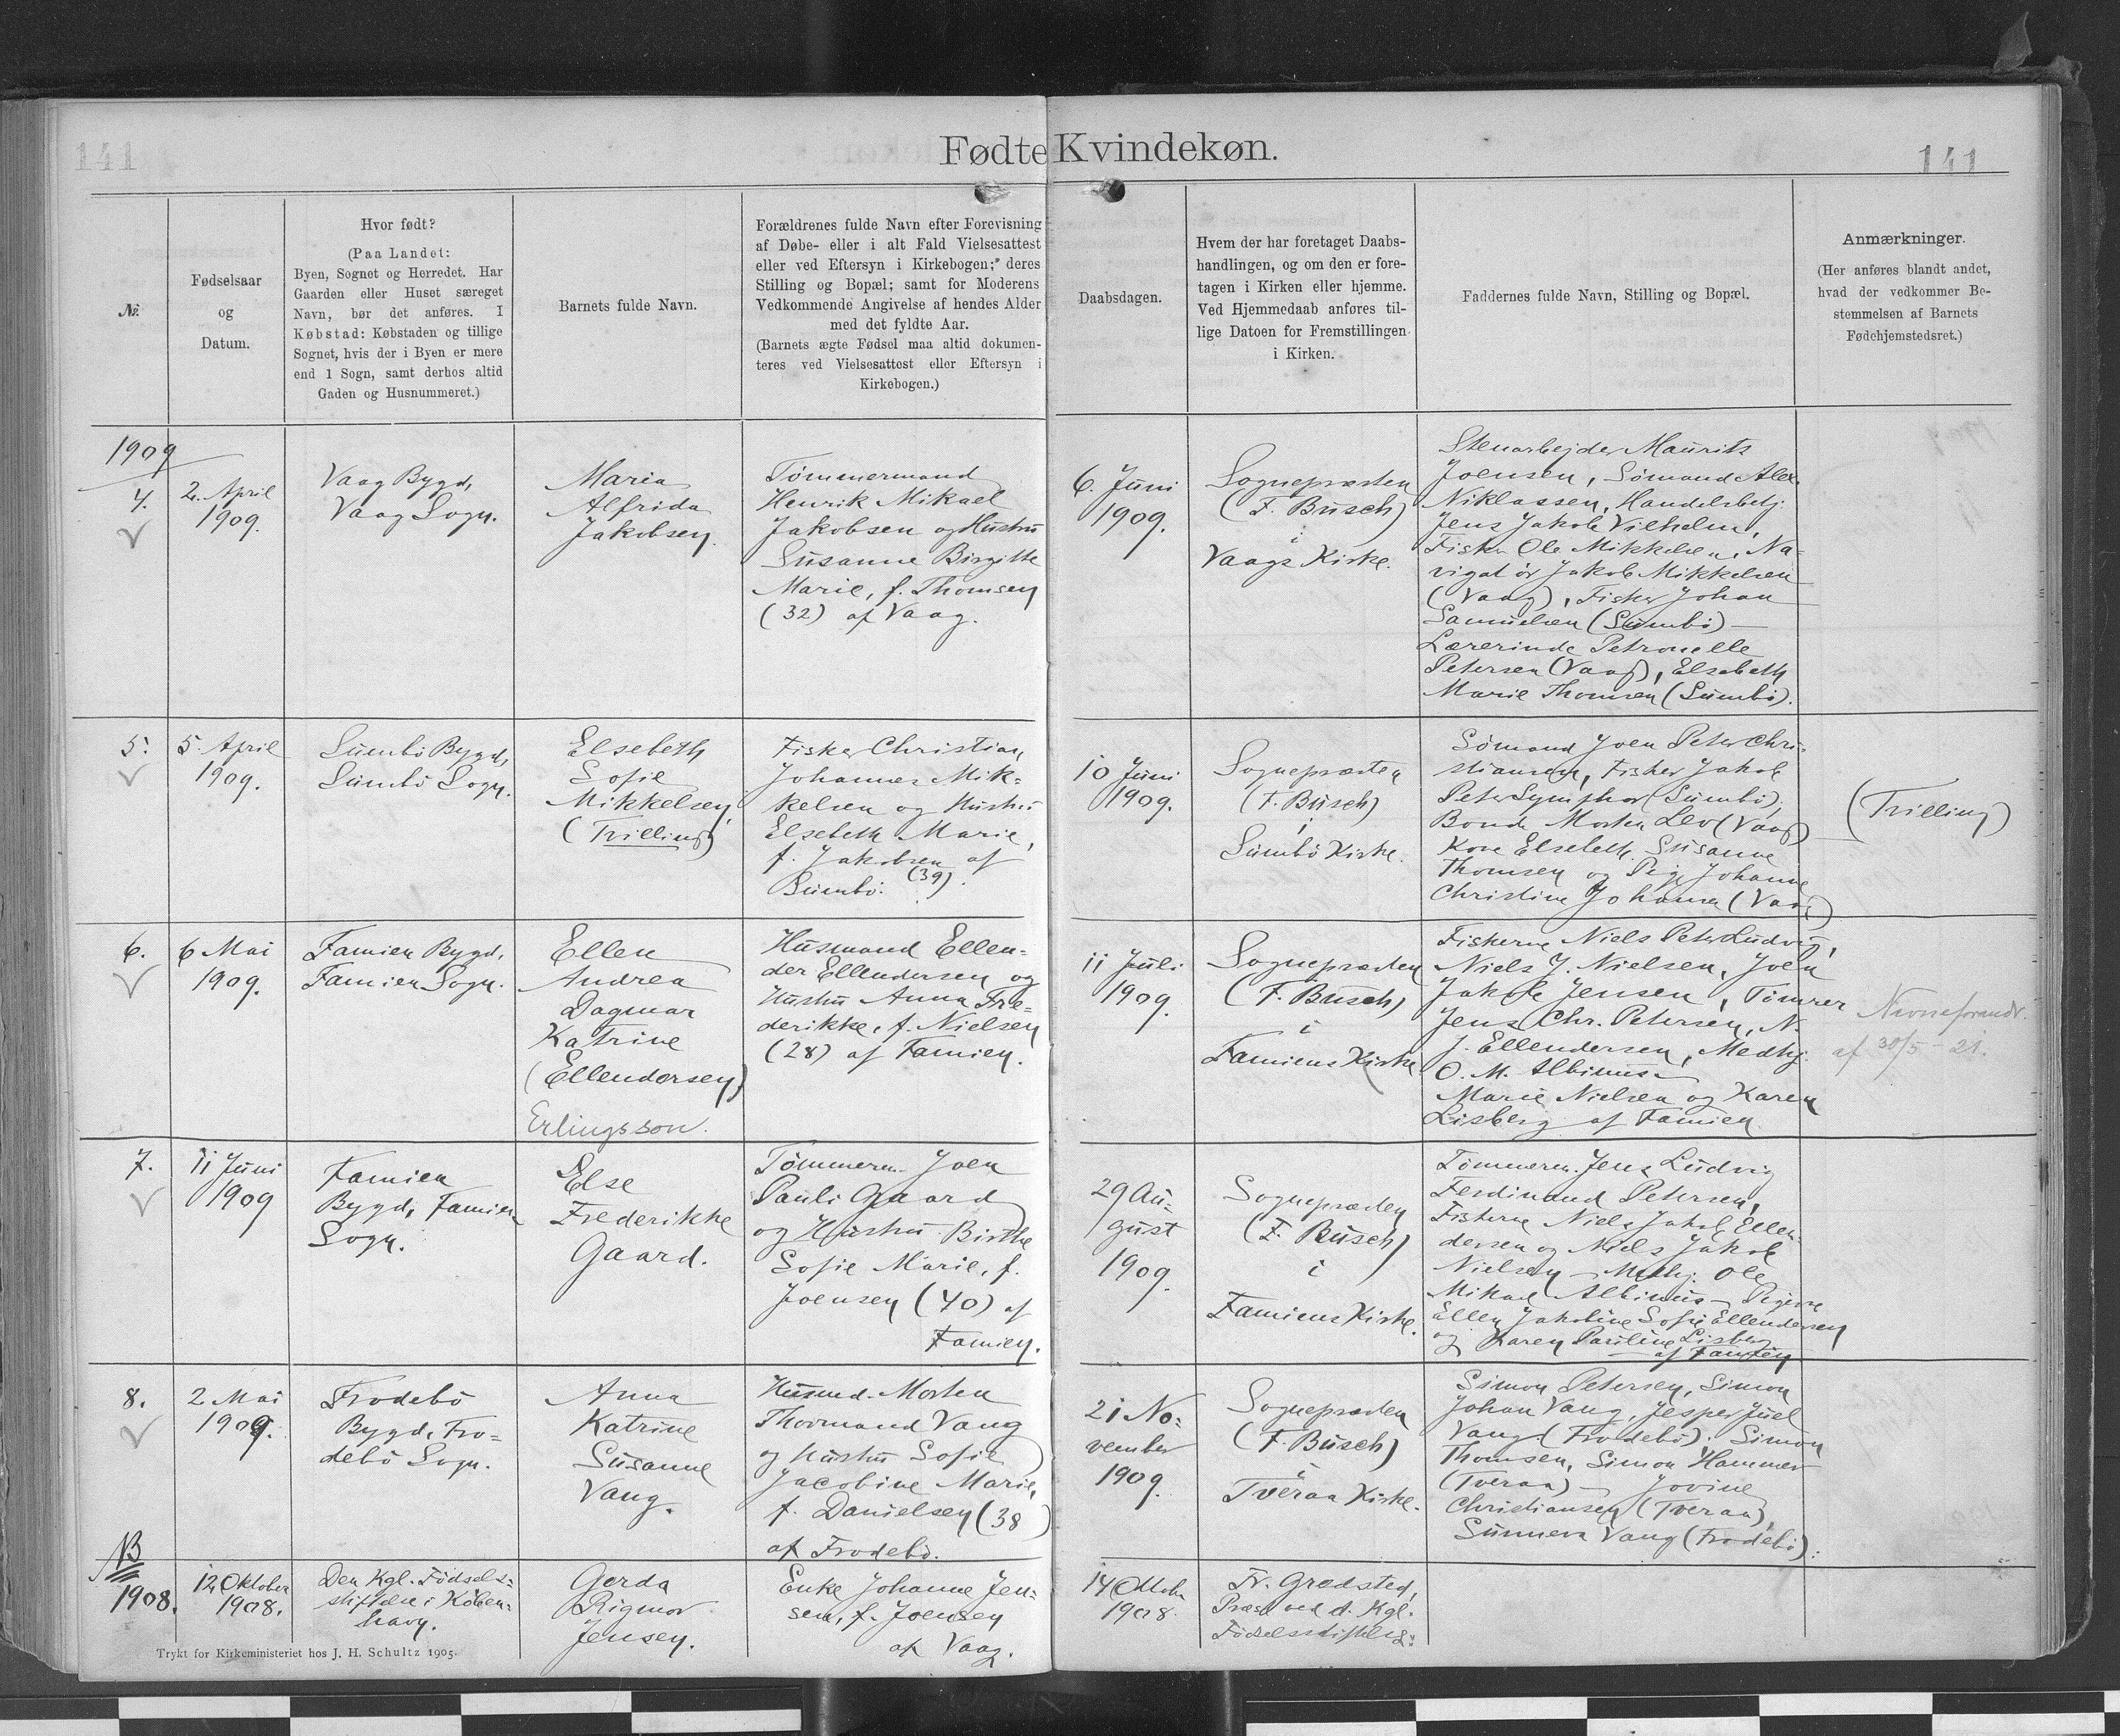 141
Fødte Kvindekøn.
141
№.
Fødselsaar
og
Datum.
Hvor født?
(Paa Landet:
Byen, Sognet og Herredet. Har
Gaarden eller Huset særeget
Navn, bør det anføres. I
Købstad: Købstaden og tillige
Sognet, hvis der i Byen er mere
end 1 Sogn, samt derhos altid
Gaden og Husnummeret.)
Barnets fulde Navn.
Forældrenes fulde Navn efter Forevisning
af Døbe- eller i alt Fald Vielsesattest
eller ved Eftersyn i Kirkebogen; deres
Stilling og Bopæl; samt for Moderens
Vedkommende Angivelse af hendes Alder
med det fyldte Aar.
(Barnets ægte Fødsel maa altid dokumen-
teres ved Vielsesattest eller Eftersyn i
Kirkebogen.)
Daabsdagen.
Hvem der har foretaget Daabs-
handlingen, og om den er fore-
tagen i Kirken eller hjemme.
Ved Hjemmedaab anføres til-
lige Datoen for Fremstillingen
i Kirken.
Faddernes fulde Navn, Stilling og Bopæl.
Anmærkninger.
(Her anføres blandt andet,
hvad der vedkommer Be-
stemmelsen af Barnets
Fødehjemstedsret.)
1909
4.
2. April
1909.
Vaag Bygd,
Vaag Sogn.
Maria
Alfrida
Jakobsen.
Tömmermand
Henrik Mikael
Jakobsen og Hustru
Susanne Birgitte
Marie, f. Thomsen
(32) af Vaag.
6. Juni
1909.
Sognepræsten
(F. Busch)
i
Vaags Kirke.
Stenarbejder Maurits
Joensen, Sömand Alex
Niklassen, Handelsbetj.
Jens Jakob Vilhelm,
Fisker Ole Mikkelsen, Na-
vigatör Jakob Mikkelsen
(Vaag), Fisker Johan
Samuelsen (Sumbö) —
Lærerinde Petronelle
Petersen (Vaag), Elsebeth
Marie Thomsen (Sumbö).
5.
5. April
1909.
Sumbö Bygd,
Sumbö Sogn.
Elsebeth
Sofie
Mikkelsen,
(Trilling)
Fisker Christian
Johannes Mik-
kelsen og Hustru
Elsebeth Marie,
f. Jakobsen af
Sumbö. (39).
10 Juni
1909.
Sognepræsten
(F. Busch)
i
Sumbö Kirke.
Sömand Joen Peter Chri-
stiansen, Fisker Jakob
Peter Symphor (Sumbö),
Bonde Morten Leo (Vaag)
Kone Elsebeth Susanne
Thomsen og Pige Johanne
Christine Johansen (Vaag)
(Trilling)
6.
6 Mai
1909.
Famien Bygd,
Famien Sogn.
Ellen
Andrea
Dagmar
Katrine
(Ellendersen)
Erlingsson.
Husmand Ellen-
der Ellendersen og
Hustru Anna Fre-
derikke, f. Nielsen
(28) af Famien.
11 Juli
1909.
Sognepræsten
(F. Busch)
i
Famiens Kirke
Fiskerne Niels Peter Ludvig,
Niels J. Nielsen, Joen
Jakob Jensen, Tömrer
Jens Chr. Petersen, N.
J. Ellendersen, Medhj.
O. M. Albinus —
Marie Nielsen og Karen
Lisberg af Famien
Navneforandr.
af 30/5 - 21.
7.
11 Juni
1909
Famien
Bygd, Famien
Sogn.
Else
Frederikke
Gaard.
Tömmerm. Joen
Pauli Gaard
og Hustru Birthe
Sofie Marie, f.
Joensen (40) af
Famien.
29 Au-
gust
1909.
Sognepræsten
(F. Busch)
i
Famiens Kirke.
Tömmerm. Jens Ludvig
Ferdinand Petersen,
Fiskerne Niels Jakob Ellen-
dersen og Niels Jakob
Nielsen — Medhj. Ole
Mikael Albinus — Pigerne
Ellen Jakobine Sofie Ellendersen
og Karen Pauline Lisberg
af Famien
8.
2 Mai
1909.
Frodebö
Bygd, Fro-
debö Sogn.
Anna
Katrine
Susanne
Vang.
Husmd. Morten
Thormand Vang
og Hustru Sofie
Jacobine Marie,
f. Danielsen (38)
af Frodebö.
21 No-
vember
1909.
Sognepræsten
(F. Busch)
i
Tveraa Kirke.
Simon Petersen, Simon
Johan Vang, Jesper Juel
Vang (Frodebö), Simon
Thomsen, Simon Hammer
(Tveraa) — Jovine
Christiansen (Tveraa),
Sunneva Vang (Frodebö).
NB
1908.
12 Oktober
1908.
Den Kgl. Födsels-
stiftelse i Köben-
havn.
Gerda
Rigmor
Jensen.
Enke Johanne Jen-
sen, f. Joensen
af Vaag.
14 Oktober
1908.
Fr. Grædsted,
Præst ved d. Kgl.
Födselsstiftelse
Trykt for Kirkeministeriet hos J. H. Schultz 1905.